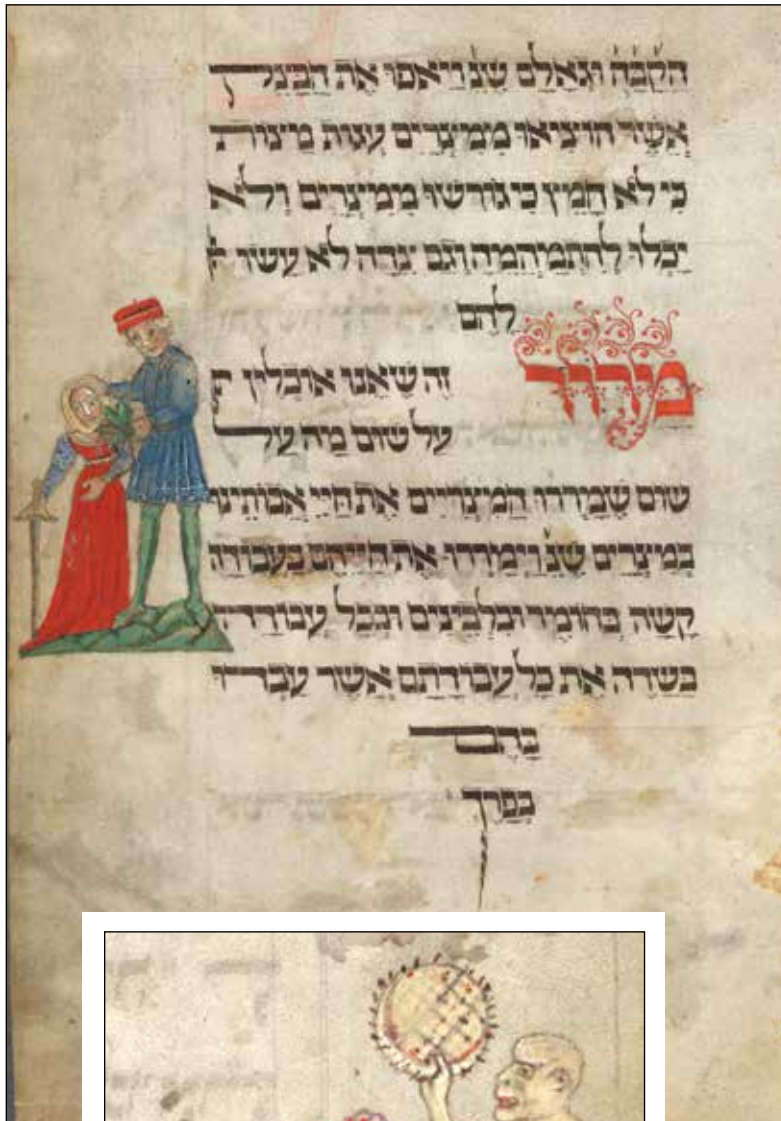 הקבה וגאלם שנ וַיֹּאפוּ אֶת הַבָּצֵק
אֲשֶׁר הוציאו מִמִּצְרַיִם עֻגות מַצות
כִּי לֹא חָמֵץ כִּי גורְשׁוּ מִמִּצְרַיִם וְלֹא
יָכְלוּ לְהִתְמַהְמֵהַ וְגַם צֵדָה לֹא עָשׂוּ
לָהֶם
מרור
זֶה שֶׁאָנוּ אוכְלין
על שום מַה עַל
שום שֶׁמָרְרוּ הַמִּצְרִיים אֶת חַיֵּי אֲבותֵינוּ
בְּמִצְרַים שֶׁנ וַיְמָרְרוּ אֶת חַיֵּיהֶם בַּעֲבודָה
קָשָׁה בְּחומֶר ובִלְבֵינִים וּבְכָל עֲבודָה
בַּשָׂדֶה אֵת כָּל עֲבודָתָם אֲשֶׁר עָבְדוּ
בָּהֶם
בְּפָרֶך